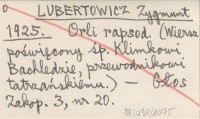 o LUBERTOWICZ Zygmunt
1925. Orli rapsod. (Wiersz
poświęcony śp. Klimkowi
Bachledzie, przewodnikowi
tatrzańskiemu.) — Głos
Zakop. 3, nr 20.